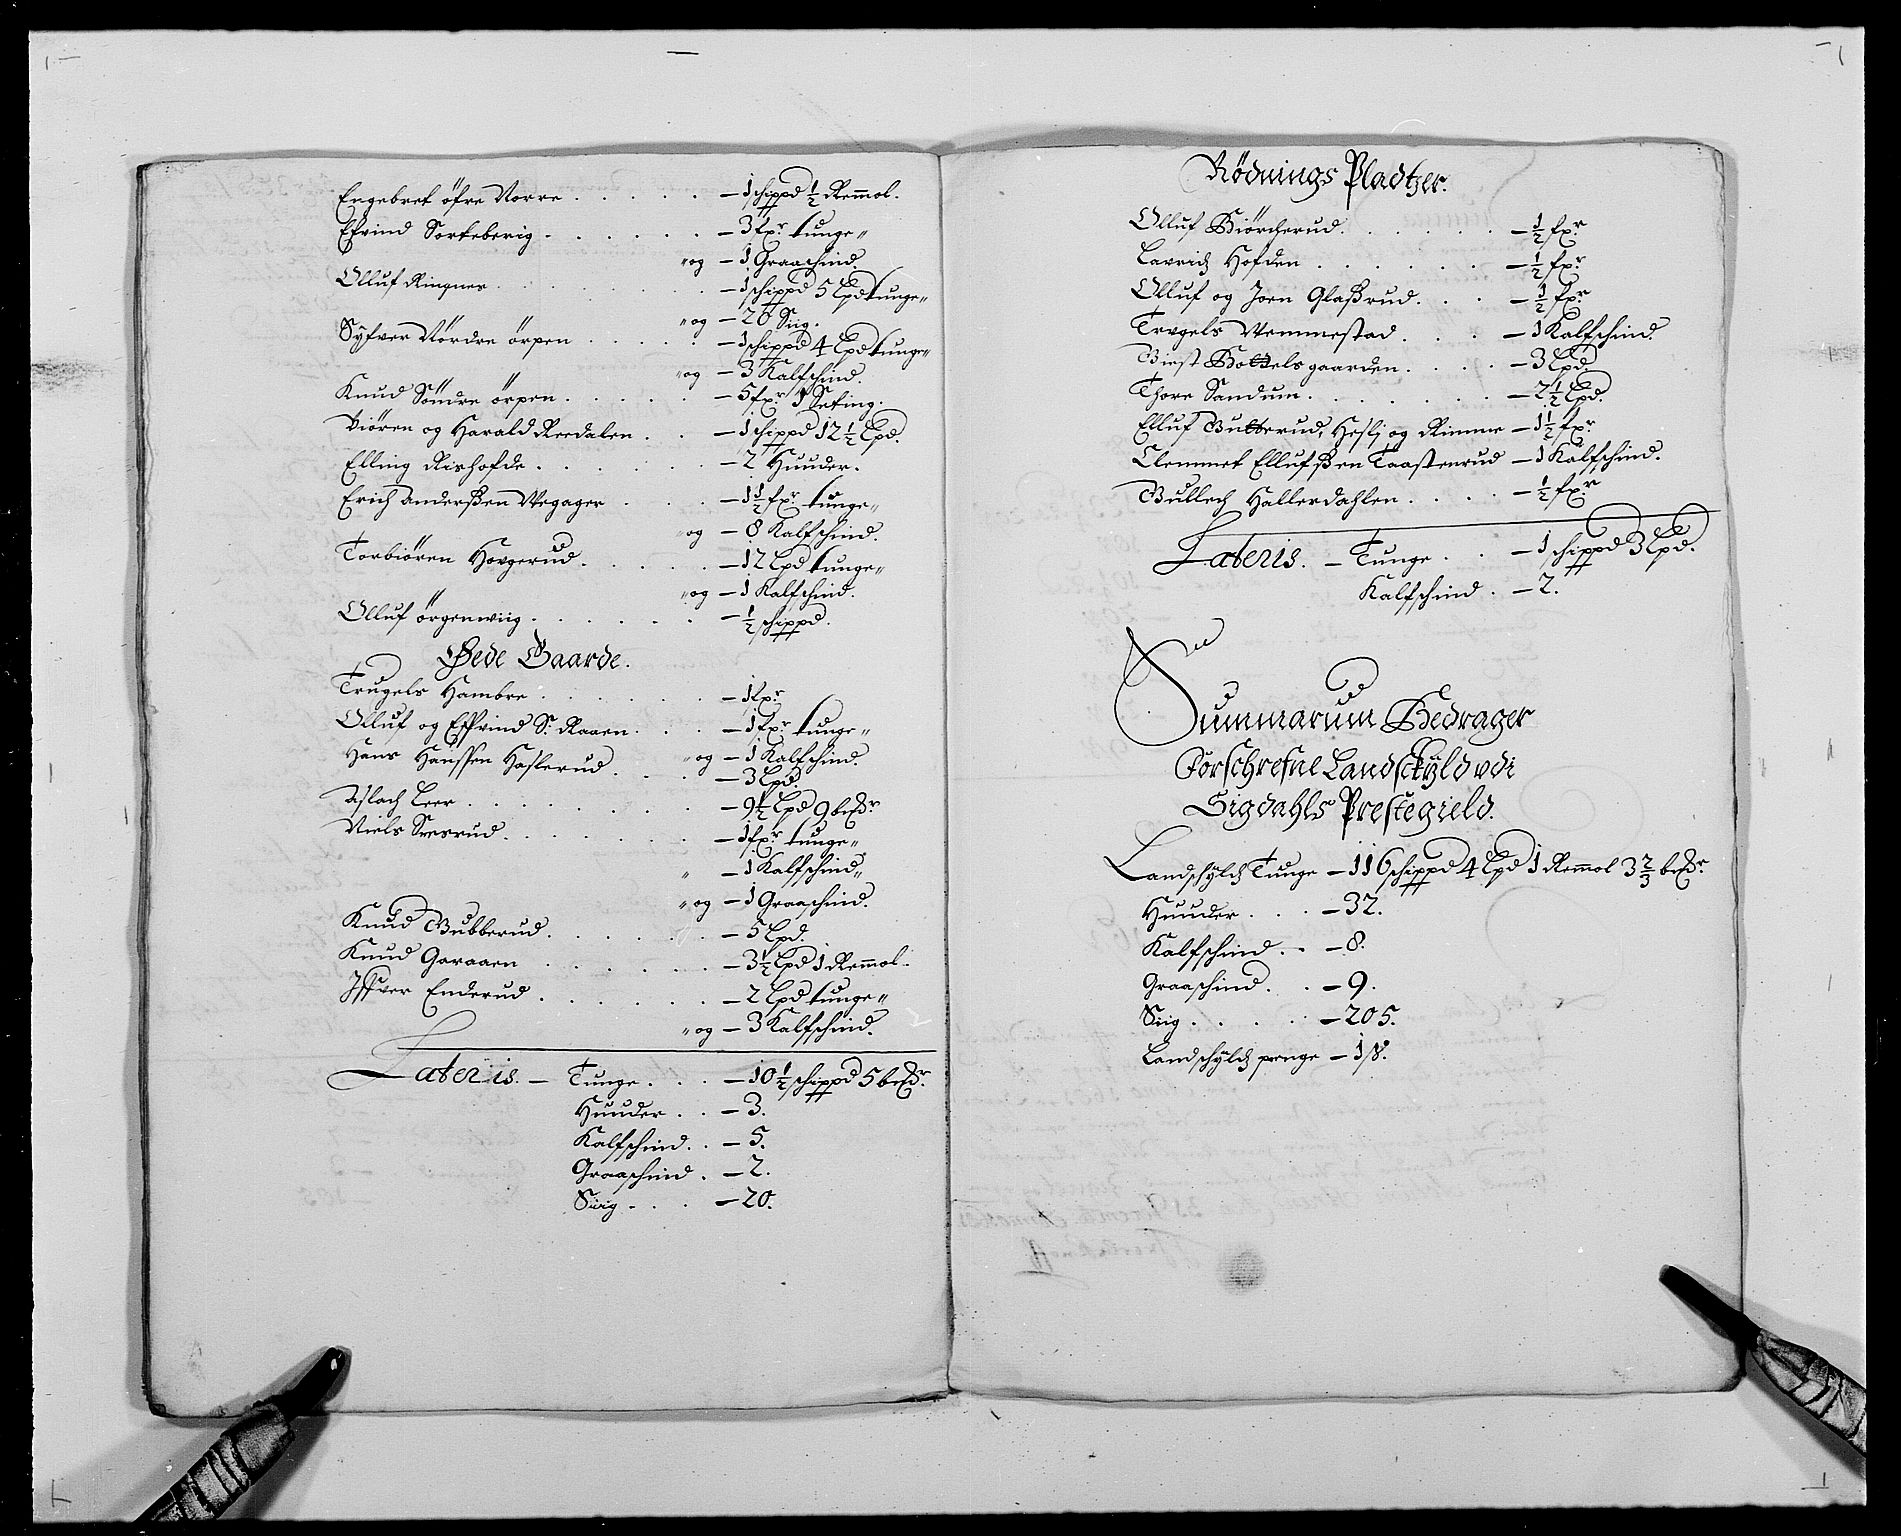 Engebret öfre Norre . . . . . — 1 schippd ½ Remmol.
Efvind Sorkeberig . . . . . — 3 fxr tunge„
„og — 1 Graaschind
Olluf Ringnes . . . . . — 1 schippd 5 Lpd tunge„
„og — 20 Siig.
Syfver Nördre örpen . . . . . — 1 schippd 4 Lpd tunge„
„og — 3 Kalfschind.
Knud Söndre örpen . . . . . — 5 fxr 1 Setting.
Biören og Harald Reedalen . . — 1 schippd 12½ Lpd.
Elling Rishofde . . . . . — 2 Huuder.
Erich Anderßen Vegager . . . — 1½ fxr tunge„
og — 8 Kalfschind.
Torbiören Hovgerud . . . . . — 12 Lpd tunge„
„og — 1 Kalfschind.
Olluf örgenwiig . . . . . — ½ schippd.
Öede Gaarde.
Trugels Hambre . . . . . — 1 fxr
Olluf og Effvind S: Raaen . . . — 1 fxr tunge„
„og — 1 Kalfschind.
Hans Hanssen Haslerud . . . — 3 Lpd.
Aslach Leer . . . . . — 9½ Lpd 9 besmr
Niels Sresrud . . . . . — 1 fxr tunge„
„ — 1 Kalfschind„
„og — 1 Graaschind.
Knud Bubberud . . . . . — 5 Lpd.
Knud Garaaen . . . . . — 3½ Lpd 1 Remmol.
Iffver Enderud . . . . . — 2 Lpd tunge„
„og — 3 Kalfschind.
Lateris. — Tunge . . . — 10½ schippd 5 besmr
Huuder . . — 3.
Kalfschind . . — 5.
Graaschind . — 2.
Siig . . . — 20.
Rödnings Pladtzer.
Olluf Biörcherud . . . . . — ½ fxr
Lavridz Hofden . . . . . — ½ fxr
Olluf og Joen Glaßrud . . . — ½ fxr
Trvgels Vemmestad . . . — 1 Kalfschind.
Giest Bottelsgaarden . . . . — 3 Lpd.
Thore Sandum . . . . . — 2½ Lpd.
Elluf Butterud, Heslj og Rimme — 1½ fxr
Clemmet Ellufßen Taastenrud — 1 Kalfschind.
Gullech Hallerdahlen . . . . — ½ fxr
Lateris. — Tunge . . — 1 schippd 3 Lpd.
Kalfschind . — 2.
Summarum Bedrager
Forschrefne Landschyld vdi
Sigdahls Prestegield.
Landschyldz Tunge — 116 schippd 4 Lpd 1 Remmol 3⅔ besmr
Huuder . . . — 32.
Kalfschind . . — 8.
Graaschind . . — 9.
Siig . . . . — 205.
Landschyldz penge — 1/8.